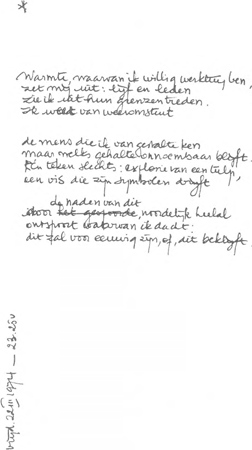 *
Warmte, waarvan ik willig werktuig ben,
zet mij uit: lijf en leden
zie ik uit hun grenzen treden.
Ik weet van weeromstuit
de mens die ik van gehalte ken
maar welks gehalte onnoembaar blijft.
Een teken slechts: explosie van een tulp,
een vis die zijn symbolen drijft
de naden van dit
door het gespoorde, noordelijk heelal
ontspoort waarvan ik dacht:
dit zal voor eeuwig zijn, of, dit beklijft.
vrijd. 22 III 1974 — 23.25u